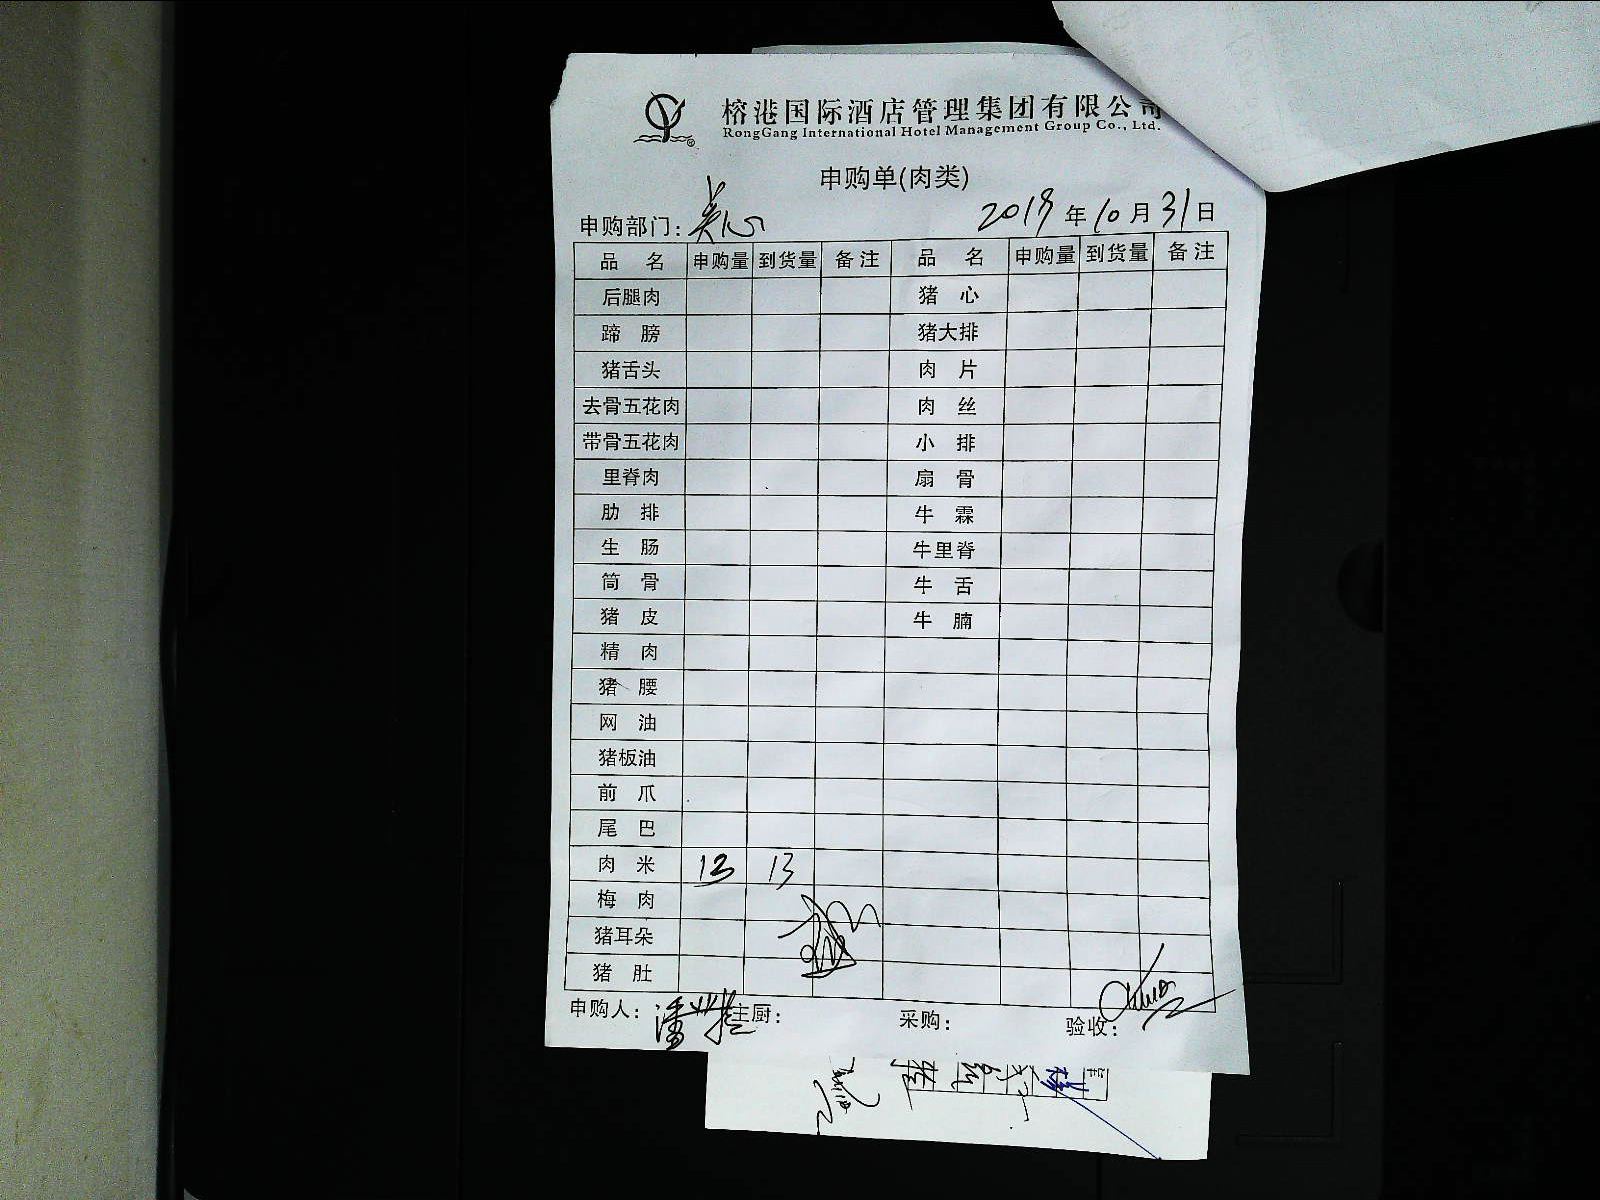 榕港国际酒店管理集团有限公司
RongGang International Hotel Management Group Co., Ltd.
申购单(肉类)
申购部门：点心 2018年10月31日
品名 申购量 到货量 备注 品名 申购量 到货量 备注
后腿肉 猪心
蹄膀 猪大排
猪舌头 肉片
去骨五花肉 肉丝
带骨五花肉 小排
里脊肉 扇骨
肋排 牛霖
生肠 牛里脊
筒骨 牛舌
猪皮 牛腩
精肉
猪腰
网油
猪板油
前爪
尾巴
肉米 13 13
梅肉
猪耳朵
猪肚
申购人：潘 主厨： 采购： 验收：